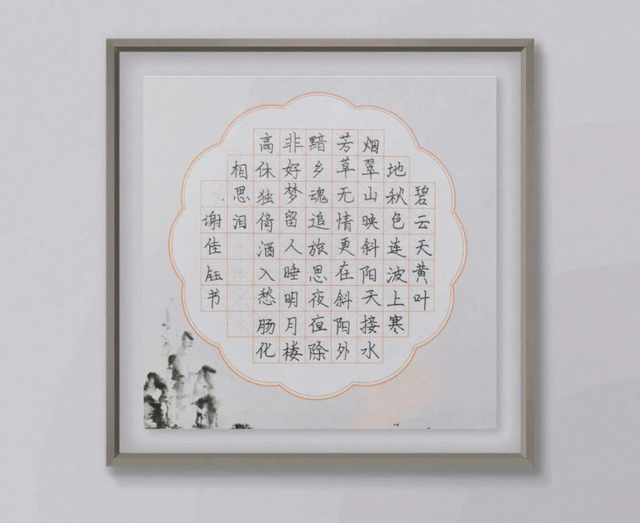 碧云天黄叶
地秋色连波上寒
烟翠山映斜阳天接水
芳草无情更在斜阳外
黯乡魂追旅思夜夜除
非好梦留人睡明月楼
高休独倚酒入愁肠化
相思泪
谢佳钰书